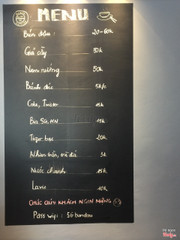 MENU
Bún đậu : 20-60k
Giả cầy 30k
Nem nướng 50k
Bánh đúc
Coke, Twister 15k
Bia SG, HN 15k
Tiger bạc 20k
Nhân trần, mủ đá 5k
Nước chanh 15k
Lavie 10k
CHÚC QUÝ KHÁCH NGON MIỆNG
Pass wifi :